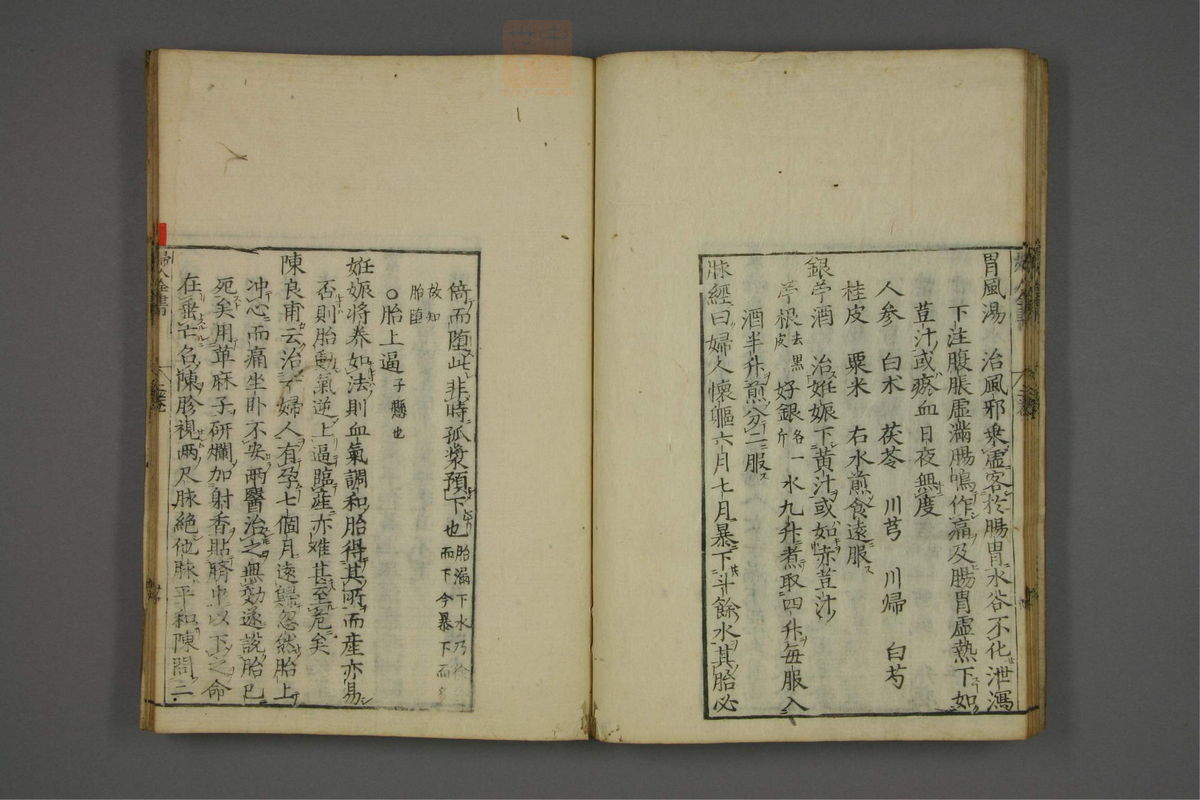 胃風湯　治風邪乗虛客於腸胃水谷不化泄瀉
下注腹脹虛滿腸鳴作痛及腸胃虛熱下如
荳汁或瘀血日夜無度
人参　白朮　茯苓　川芎　川歸　白芍
桂皮　粟米　右水煎食遠服ス
銀苧酒　治姙娠下黄汁或如赤荳汁
苧根去黒皮　好銀各一斤　水九升煮取四升毎服入
酒半升煎分二服ス
脉經曰婦人懐軀六月七月暴下斗餘水其胎必
倚而堕此非時孤漿預下也胎漏下水乃徐
而下今暴下而
故知
胎堕
○胎上逼子懸也
姙娠將养如法則血氣調和胎得其所而産亦易
否則胎動氣逆上逼臨産亦难甚至危矣
陳良甫云治一婦人有孕七個月遠歸忽然胎上
冲心而痛坐卧不安两醫治之無効遂説胎已
死矣用草麻子研爛加射香貼臍中以下之命
在垂亡名陳胗視两尺脉絶他脉平和陳問二
婦人全書